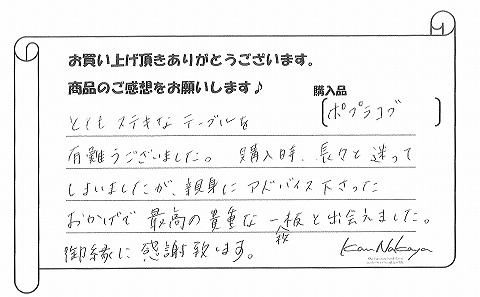 お買い上げ頂きありがとうございます。
商品のご感想をお願いします♪
購入品
ポプラコブ
とても ステキな テーブルを
有難うございました。 購入時、長々と迷って
しまいましたが、親身に アドバイス下さった
おかげで 最高の貴重な 一枚板と出会えました。
御縁に 感謝致します。
KanNakaya